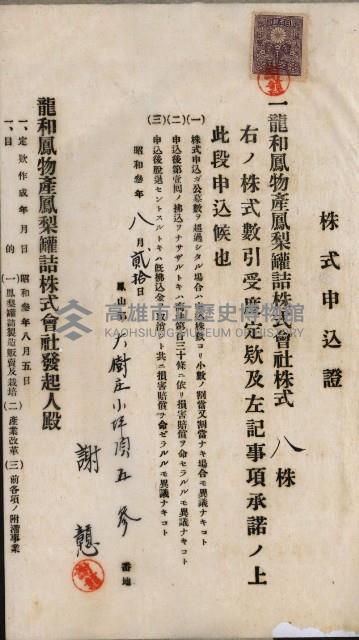 株式申込證
一龍和鳳物產鳳梨罐詰株式會社株式 八 株
右ノ株式數引受度定欵及左記事項承諾ノ上
此段申込候也
(一) 株式申込ガ公募數ヲ超過シタル場合ハ申込株數ヨリ小數ノ割當又割當ナキ場合モ異議ナキコト
(二) 申込後第壹回ノ拂込ヲナサザルトキハ商法第百三十條ニ依リ損害賠償ヲ命セラルルモ異議ナキコト
(三) 申込後股退セントスルトキハ既拂込金ヲ取消スト共ニ損害賠償ヲ命ゼラルルモ異議ナキコト
昭和參年 八 月 貳拾 日
鳳山郡大樹庄小坪頂五參 番地
謝 憨
龍和鳳物產鳳梨罐詰株式會社發起人殿
一、定欵作成年月日 昭和參年八月五日
一、目的 (一)鳳梨罐詰製造販賣及栽培(二)產業改革(三)前各項ノ附滯事業
高雄市立歷史博物館
KAOHSIUNG MUSEUM OF HISTORY